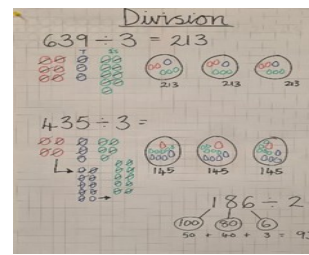 Division
639 ÷ 3 = 213
T
213 213 213
435 ÷ 3 =
145 145 145
186 ÷ 2
100 80 6
50 + 40 + 3 = 93